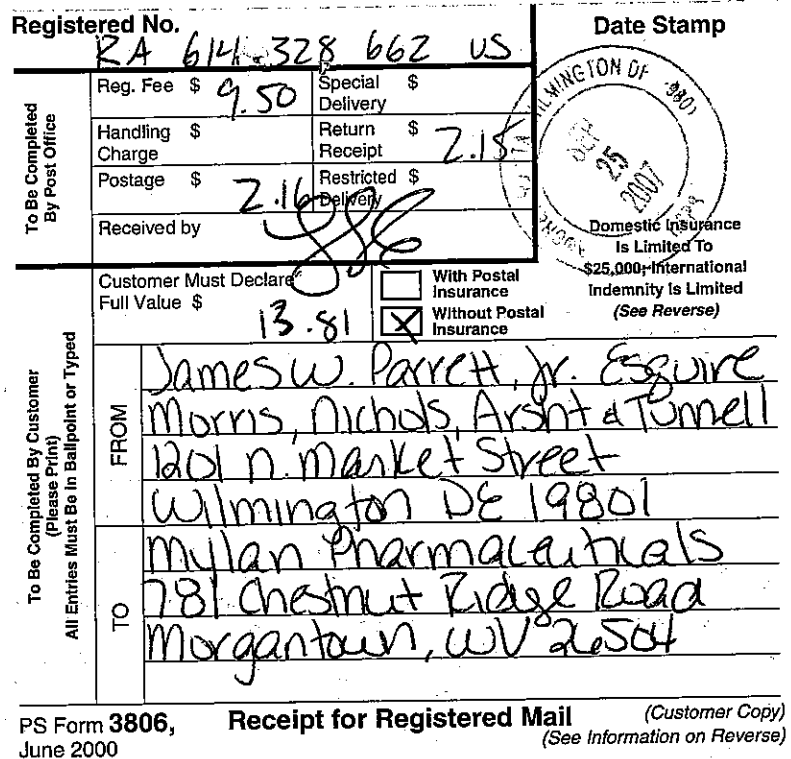 Registered No.
RA 614 328 662 US
Date Stamp
To Be Completed
By Post Office
Reg. Fee $ 9.50
Special $
Delivery
Handling $
Charge
Return $
Receipt 2.15
Postage $ 2.16
Restricted $
Delivery
Received by
WILMINGTON DE 19801
SEP
25
2007
Domestic Insurance
Is Limited To
$25,000; International
Indemnity Is Limited
(See Reverse)
Customer Must Declare
Full Value $ 13.81
With Postal
Insurance
X Without Postal
Insurance
To Be Completed By Customer
(Please Print)
All Entries Must Be in Ballpoint or Typed
FROM
James W. Parrett, Jr. Esquire
Morris, Nichols, Arsht & Tunnell
1201 N. Market Street
Wilmington DE 19801
TO
Mylan Pharmaceuticals
781 Chestnut Ridge Road
Morgantown, WV 26504
PS Form 3806,
June 2000
Receipt for Registered Mail
(Customer Copy)
(See Information on Reverse)